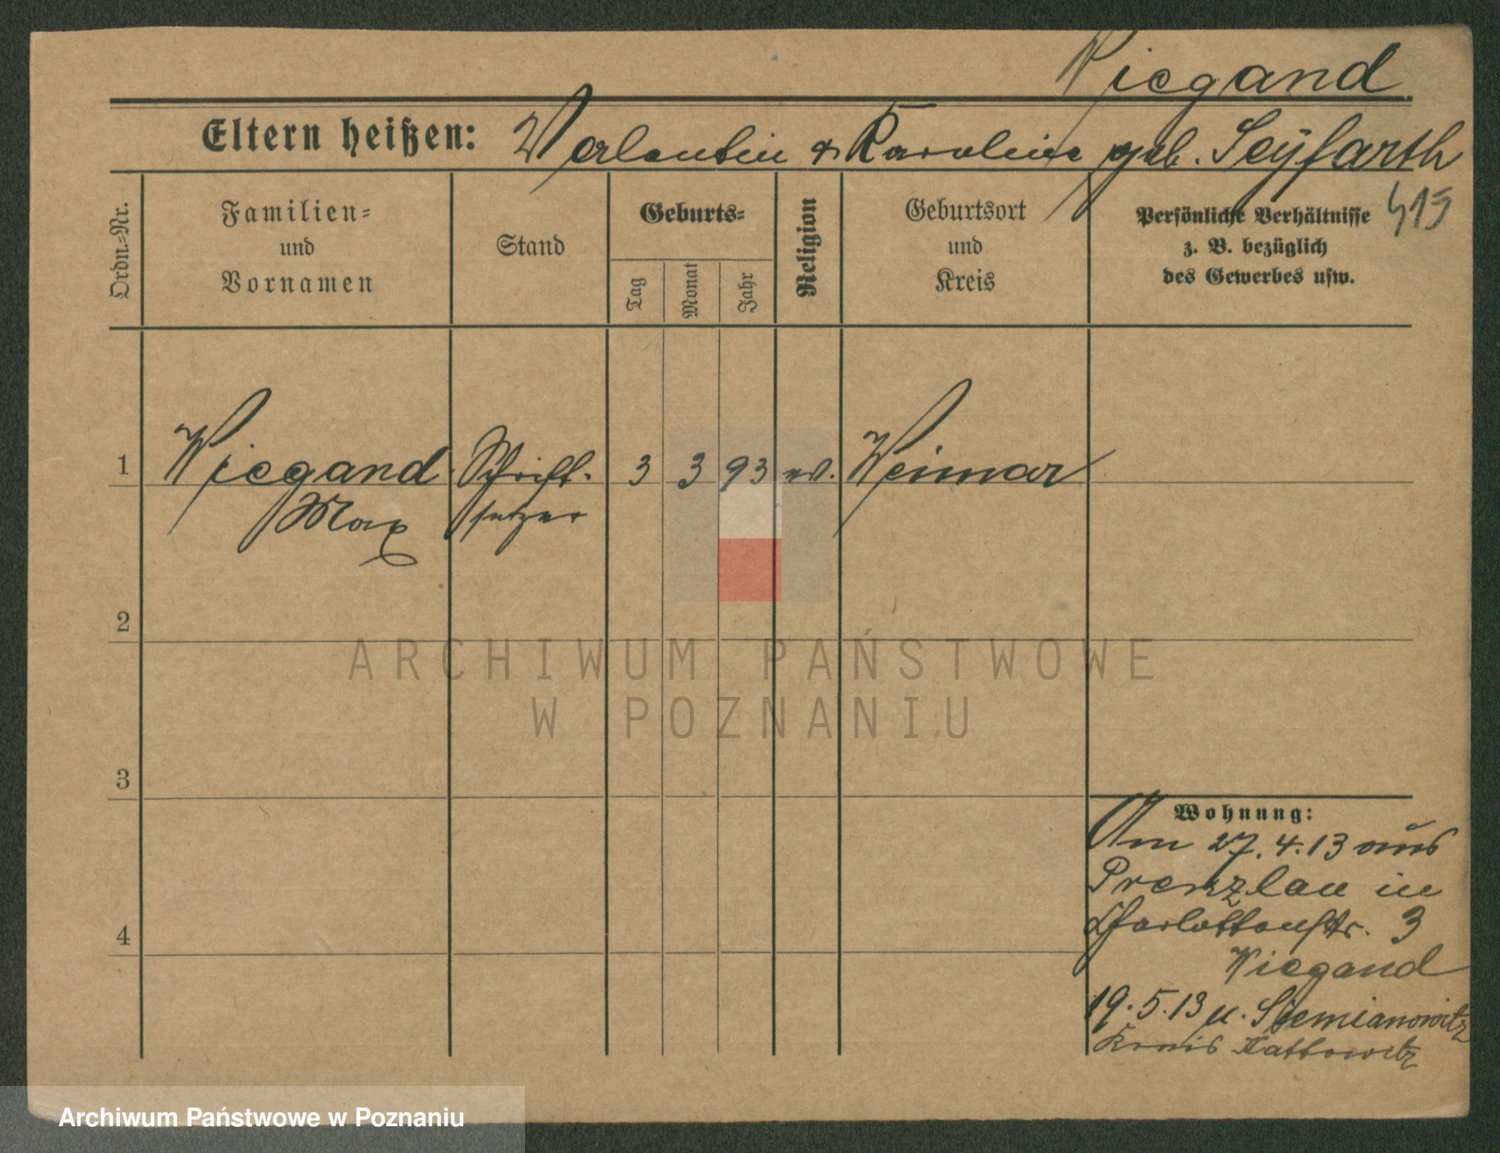 Wiegand
Eltern heißen: Valentin & Karoline geb. Seyfarth
415
Ordn.-Nr.
Familien-
und
Vornamen
Stand
Geburts-
Tag
Monat
Jahr
Religion
Geburtsort
und
Kreis
Persönliche Verhältnisse
z. B. bezüglich
des Gewerbes usw.
1 Wiegand Schrift- 3 3 93 ev. Weimar
Max setzer
2
3
4
Wohnung:
Am 27.4.13 aus
Prenzlau in
Charlottenstr. 3
Wiegand
19.5.13 n. Siemianowitz
Kreis Kattowitz
ARCHIWUM PAŃSTWOWE
W POZNANIU
Archiwum Państwowe w Poznaniu